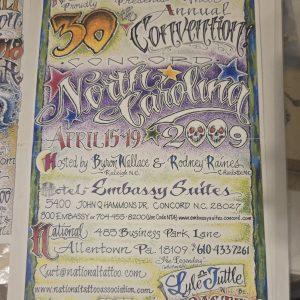 Proudly Presents Their
30 Annual
Convention!
CONCORD
North Carolina
APRIL 15-19 2009
Hosted by Byron Wallace & Rodney Raines
Raleigh N.C. Charlotte N.C.
Hotel Embassy Suites
5400 JOHN Q HAMMONDS DR. CONCORD N.C. 28027
800 EMBASSY or 704-455-8200 (Use Code NTA) www.embassysuites.concord.com
National 485 Business Park Lane
Allentown Pa. 18109 610-433-7261
Curt@nationaltattoo.com "The Legendary"
www.nationaltattooassociation.com Lyle Tuttle